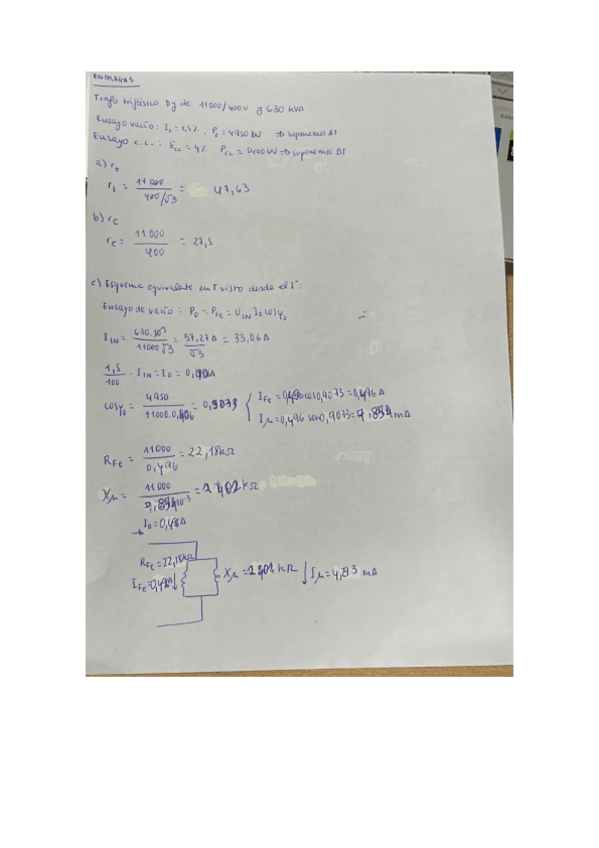 ENTREGA 3
Trafo trifásico Dy de 11000/400V y 630 kVA
Ensayo vacío: I₀ = 1,5% , P₀ = 4950 W → suponemos AT
Ensayo c.c.: Ecc = 4% Pcc = 5400 W → suponemos BT
a) rt
rt = 11 000 / 400/√3 = 47,63
b) re
re = 11 000 / 400 = 27,5
c) Esquema equivalente en Γ visto desde el 1º:
Ensayo de vacío: P₀ = PFe = U1N I0 cosφ₀
I1N = 630·10³ / 11000√3 = 57,27A / √3 = 33,06A
1,5 / 100 · I1N = I0 =
cosφ₀ = 4950 / 11000· =
IFe = 0,496 cos 0,9073 = 0,496A
Iμ = 0,496 sen 0,9073 = mA
RFe = 11000 / 0,496 = 22,18 kΩ
Xμ = 11 000 / =
RFe = 22,18kΩ
Xμ = kΩ
Iμ = mA